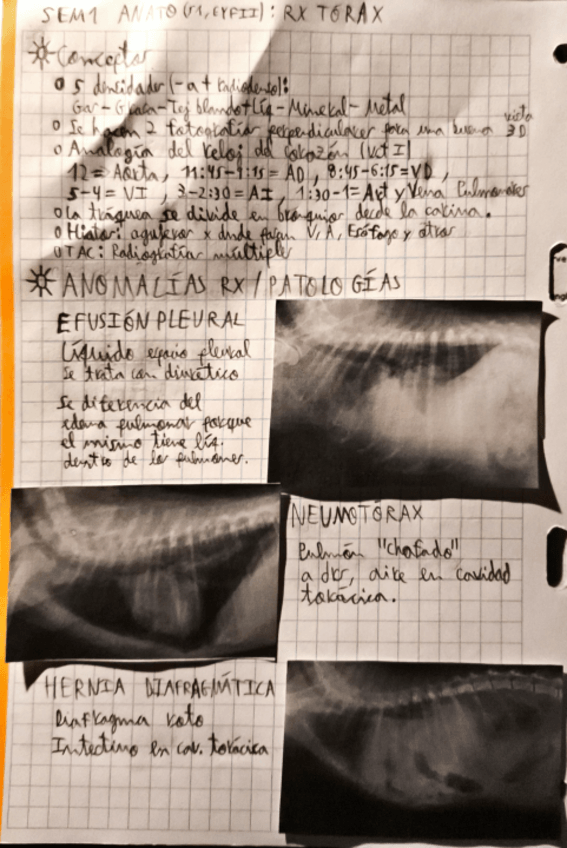 SEM1 ANATO (V1, EYFII): RX TÓRAX
Conceptos
5 densidades (- a + radiodenso):
Gas - Grasa - Tej blando+Líq - Mineral - Metal
Se hacen 2 fotografías perpendiculares para una buena vista 3D
Analogía del reloj da corazón (VD + I)
12 = Aorta, 11:45-9:15 = AD, 8:45-6:15 = VD,
5-4 = VI, 3-2:30 = AI, 1:30-1 = Art y Vena Pulmonares
La tráquea se divide en bronquios desde la carina.
Hiatos: agujeros x dnde pasan V, A, Esófago y otros
TAC: Radiografías múltiples
ANOMALÍAS RX / PATOLOGÍAS
EFUSIÓN PLEURAL
Líquido espacio pleural
Se trata con diurético
Se diferencia del
edema pulmonar porque
el mismo tiene líq.
dentro de los pulmones.
NEUMOTÓRAX
Pulmón "chafado"
aire en cavidad
torácica.
HERNIA DIAFRAGMÁTICA
Diafragma roto
Intestino en cav. torácica